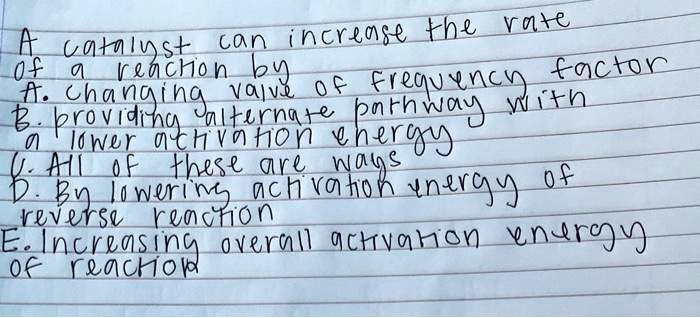 A catalyst can increase the rate
of a reaction by
A. changing value of frequency factor
B. providing alternate pathway with
a lower activation energy
C. All of these are ways
D. By lowering activation energy of
reverse reaction
E. Increasing overall activation energy
of reaction